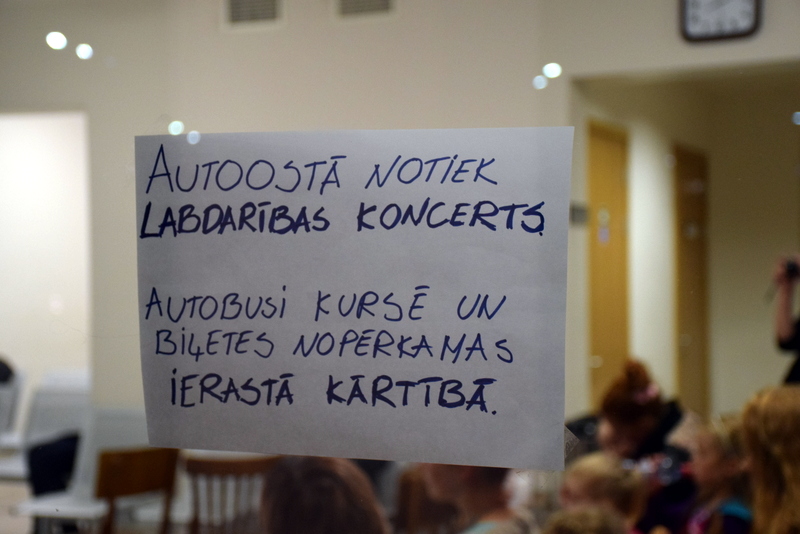 AUTOOSTĀ NOTIEK
LABDARĪBAS KONCERTS.
AUTOBUSI KURSĒ UN
BIĻETES NOPĒRKAMAS
IERASTĀ KĀRTĪBĀ.